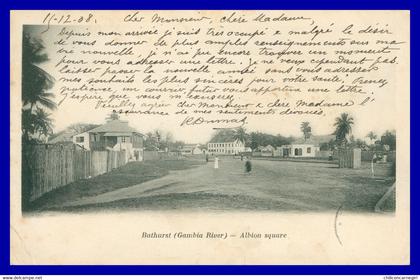 11-12-08.
Cher Monsieur, chère Madame,
Depuis mon arrivée je suis très occupé & malgré le désir
de vous donner de plus amples renseignements sur ma
vie nouvelle, je n'ai pu encore trouver un moment
pour vous adresser une lettre. Je ne veux cependant pas
laisser passer la nouvelle année sans vous adresser
mes souhaits les plus sincères pour votre famille.
un courrier futur vous apportera une lettre.
J'espère que vous m'excuserez
Veuillez agréer cher Monsieur & chère Madame l'
assurance de mes sentiments dévoués
Bathurst (Gambia River) — Albion square